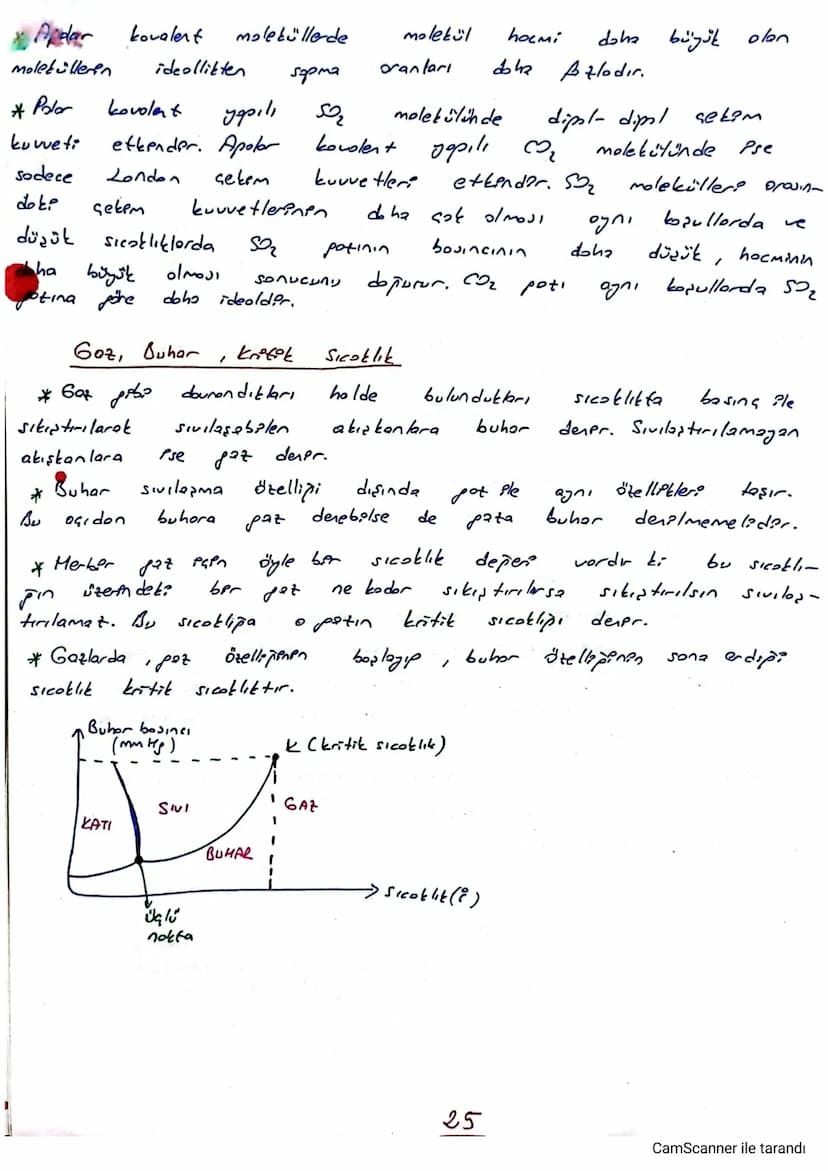 * Apolar kovalent moleküllerde molekül hacmi daha büyük olan
moleküllerin ideallikten sapma oranları daha fazladır.
* Polar kovalent yapılı SO₂ molekülünde dipol-dipol çekim
kuvveti etkendir. Apolar kovalent yapılı CO₂ molekülünde ise
sadece London çekim kuvvetleri etkendir. SO₂ molekülleri arasın-
daki çekim kuvvetlerinin daha çok olması aynı koşullarda ve
düşük sıcaklıklarda SO₂ gazının basıncının daha düşük, hacminin
daha büyük olması sonucunu doğurur. CO₂ gazı aynı koşullarda SO₂
gazına göre daha idealdir.
Gaz, Buhar, Kritik Sıcaklık
* Gaz gibi davrandıkları halde bulundukları sıcaklıkta basınç ile
sıkıştırılarak sıvılaşabilen akışkanlara buhar denir. Sıvılaştırılamayan
akışkanlara ise gaz denir.
* Buhar sıvılaşma özelliği dışında gaz ile aynı özellikleri taşır.
Bu açıdan buhara gaz denebilse de gaza buhar denilmemelidir.
* Her bir gaz için öyle bir sıcaklık değeri vardır ki bu sıcaklı-
ğın üzerindeki bir gaz ne kadar sıkıştırılırsa sıkıştırılsın sıvılaş-
tırılamaz. Bu sıcaklığa o gazın kritik sıcaklığı denir.
* Gazlarda, gaz özelliğinin başlayıp, buhar özelliğinin sona erdiği
sıcaklık kritik sıcaklıktır.
Buhar basıncı
(mm Hg)
K (kritik sıcaklık)
SIVI
GAZ
KATI
BUHAR
Sıcaklık(°)
Üçlü
nokta
25
CamScanner ile tarandı